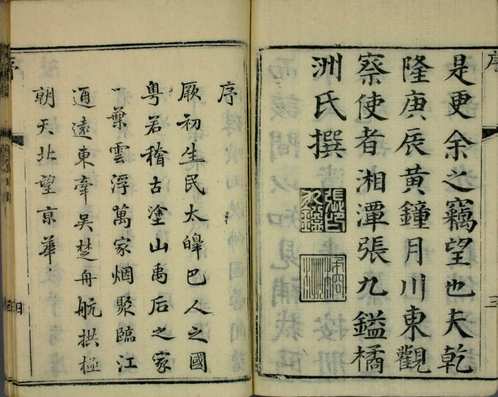 是更余之竊望也夫乾
隆庚辰黃鐘月川東觀
察使者湘潭張九鎰橘
洲氏撰
序
三
序
厥初生民太皞巴人之國
粵若稽古塗山禹后之家
一葉雲浮萬家烟聚臨江
通遠東牽吳楚舟航拱極
朝天北望京華
序